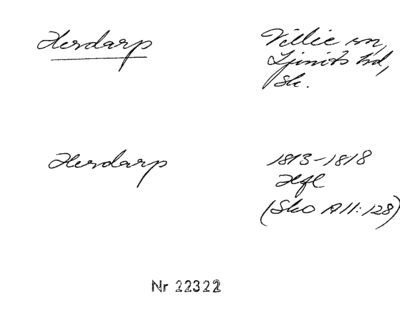 Herdarp
Villie sn,
Ljunits hd,
Sk.
Herdarp
1813-1818
Hfl
(Sko AII:128)
Nr 22322